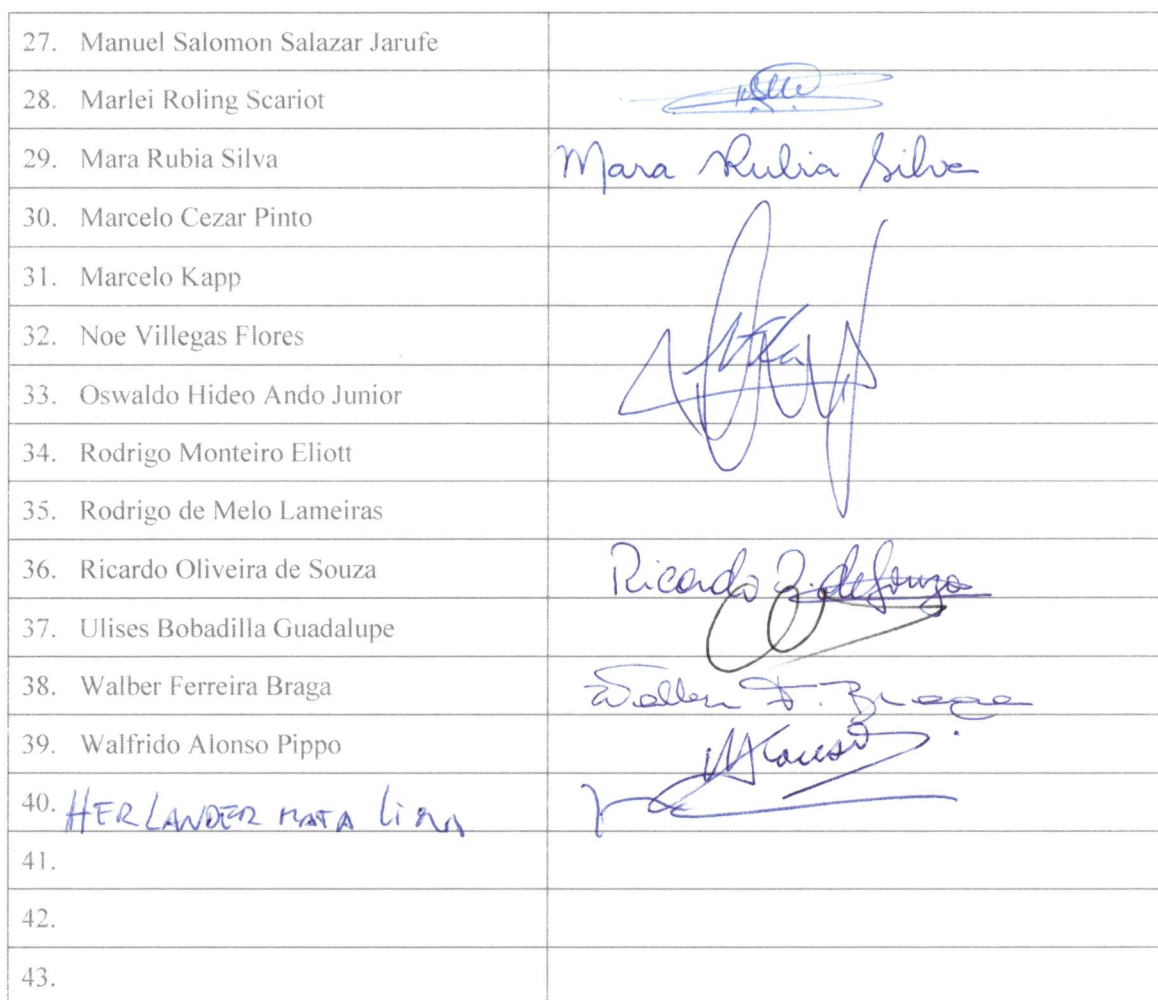 27. Manuel Salomon Salazar Jarufe
28. Marlei Roling Scariot
29. Mara Rubia Silva Mara Rubia Silva
30. Marcelo Cezar Pinto
31. Marcelo Kapp
32. Noe Villegas Flores
33. Oswaldo Hideo Ando Junior
34. Rodrigo Monteiro Eliott
35. Rodrigo de Melo Lameiras
36. Ricardo Oliveira de Souza Ricardo O. de Souza
37. Ulises Bobadilla Guadalupe
38. Walber Ferreira Braga Walber F. Braga
39. Walfrido Alonso Pippo
40. HERLANDER MATA LIMA
41.
42.
43.